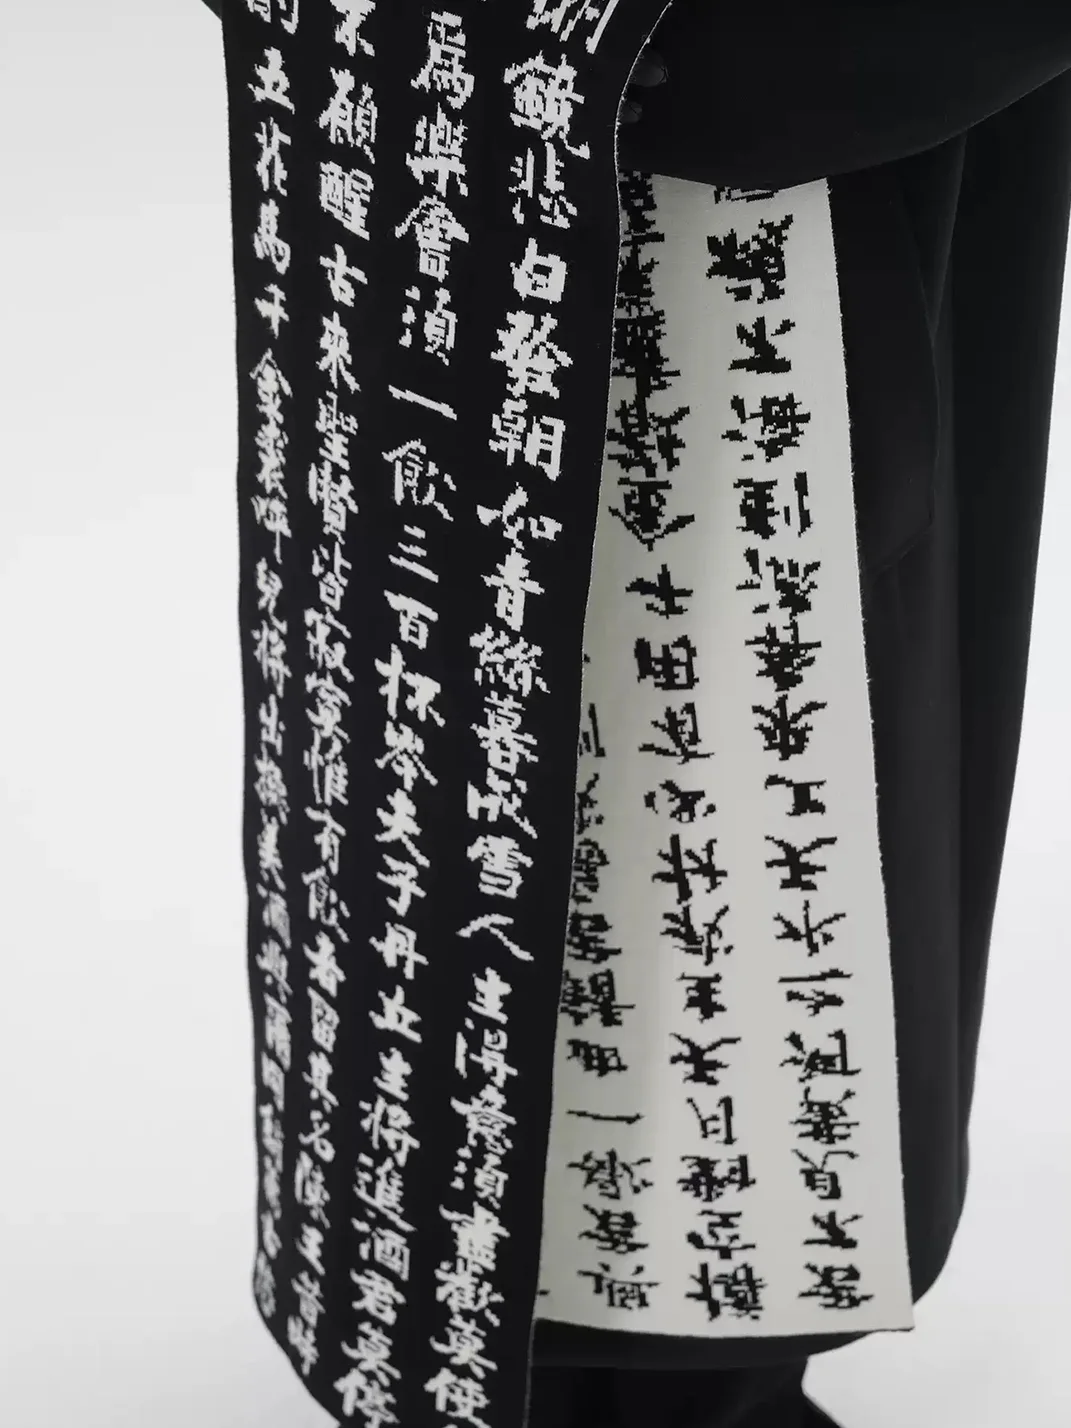 明鏡悲白發朝如青絲暮成雪人生得意須盡歡莫使
爲樂會須一飲三百杯岑夫子丹丘生將進酒君莫停
不願醒古來聖賢皆寂寞惟有飲者留其名陳王昔時
酌五花馬千金裘呼兒將出換美酒與爾同銷萬古愁
君不見黃河之水天上來奔流到海不復
樽空對月天生我材必有用千金散盡
與君歌一曲